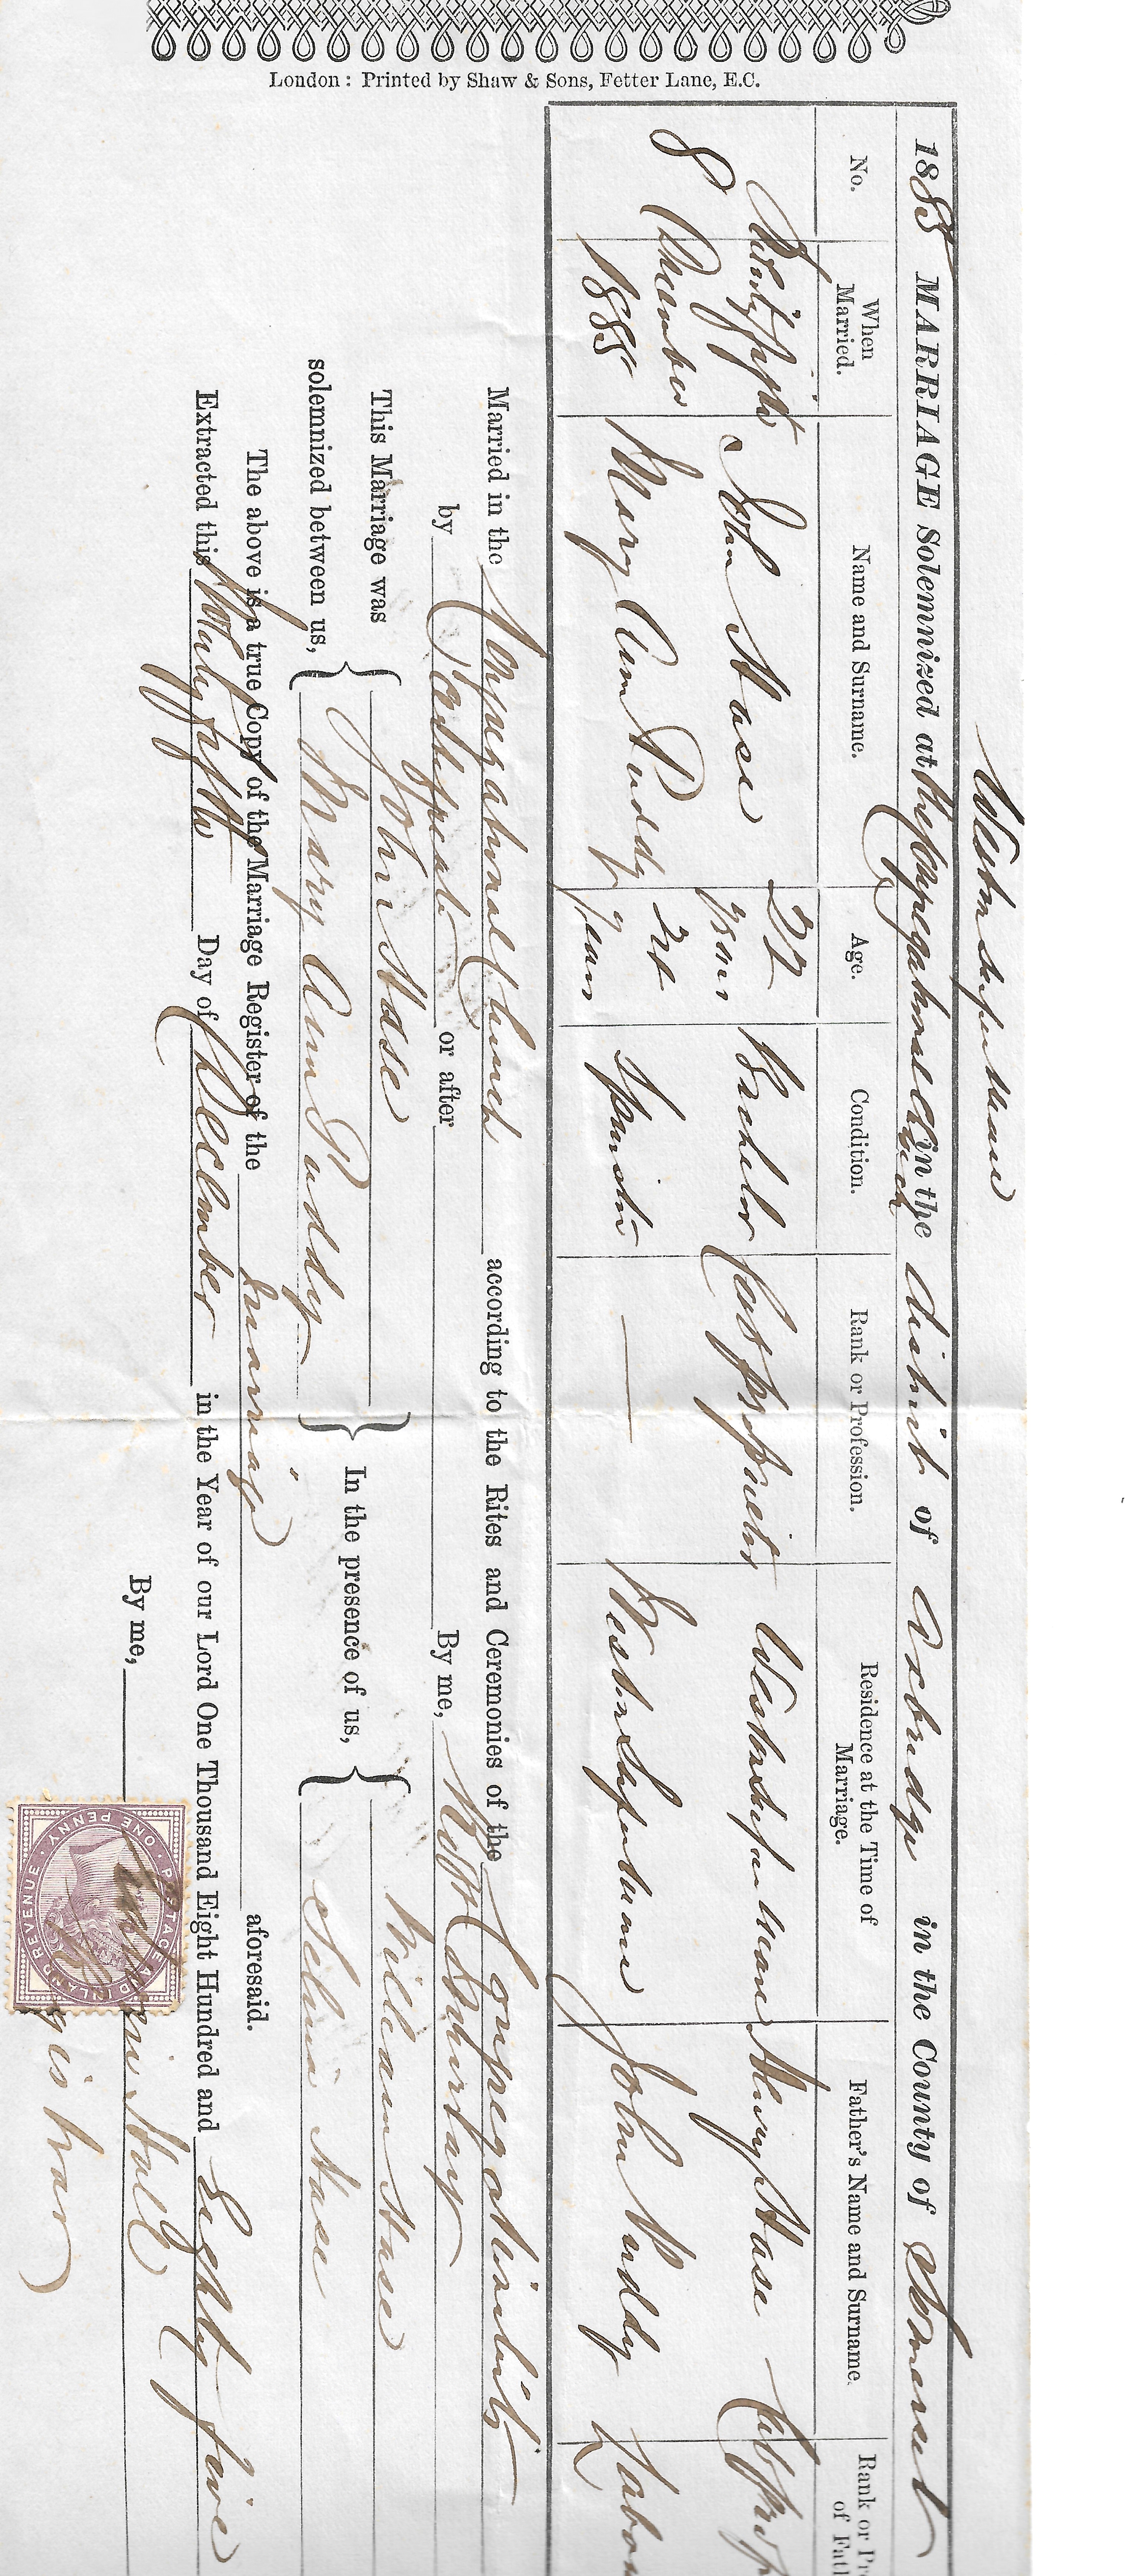 Weston super Mare
1885 MARRIAGE Solemnized at the Congregational Church in the district of Axbridge in the County of Somerset
No.
When Married.
Name and Surname.
Age.
Condition.
Rank or Profession.
Residence at the Time of Marriage.
Father's Name and Surname.
Rank or Pr
of Fath
8
Twenty fifth December 1885
John Hase
22 years
Bachelor
Cab Proprietor
Weston super Mare
Henry Hase
Cab Prop
Mary Ann Puddy
24 years
Spinster
—
Weston super Mare
John Puddy
Labo
Married in the Congregational Church according to the Rites and Ceremonies of the Congregationalists
by Certificate or after By me,
This Marriage was solemnized between us, { John Hase
Mary Ann Puddy } In the presence of us, { William Hase
Selina Hase
The above is a true Copy of the Marriage Register of the marriage aforesaid.
Extracted this Twenty fifth Day of December in the Year of our Lord One Thousand Eight Hundred and Eighty five
By me, Hall
POSTAGE AND INLAND REVENUE
ONE PENNY
London: Printed by Shaw & Sons, Fetter Lane, E.C.